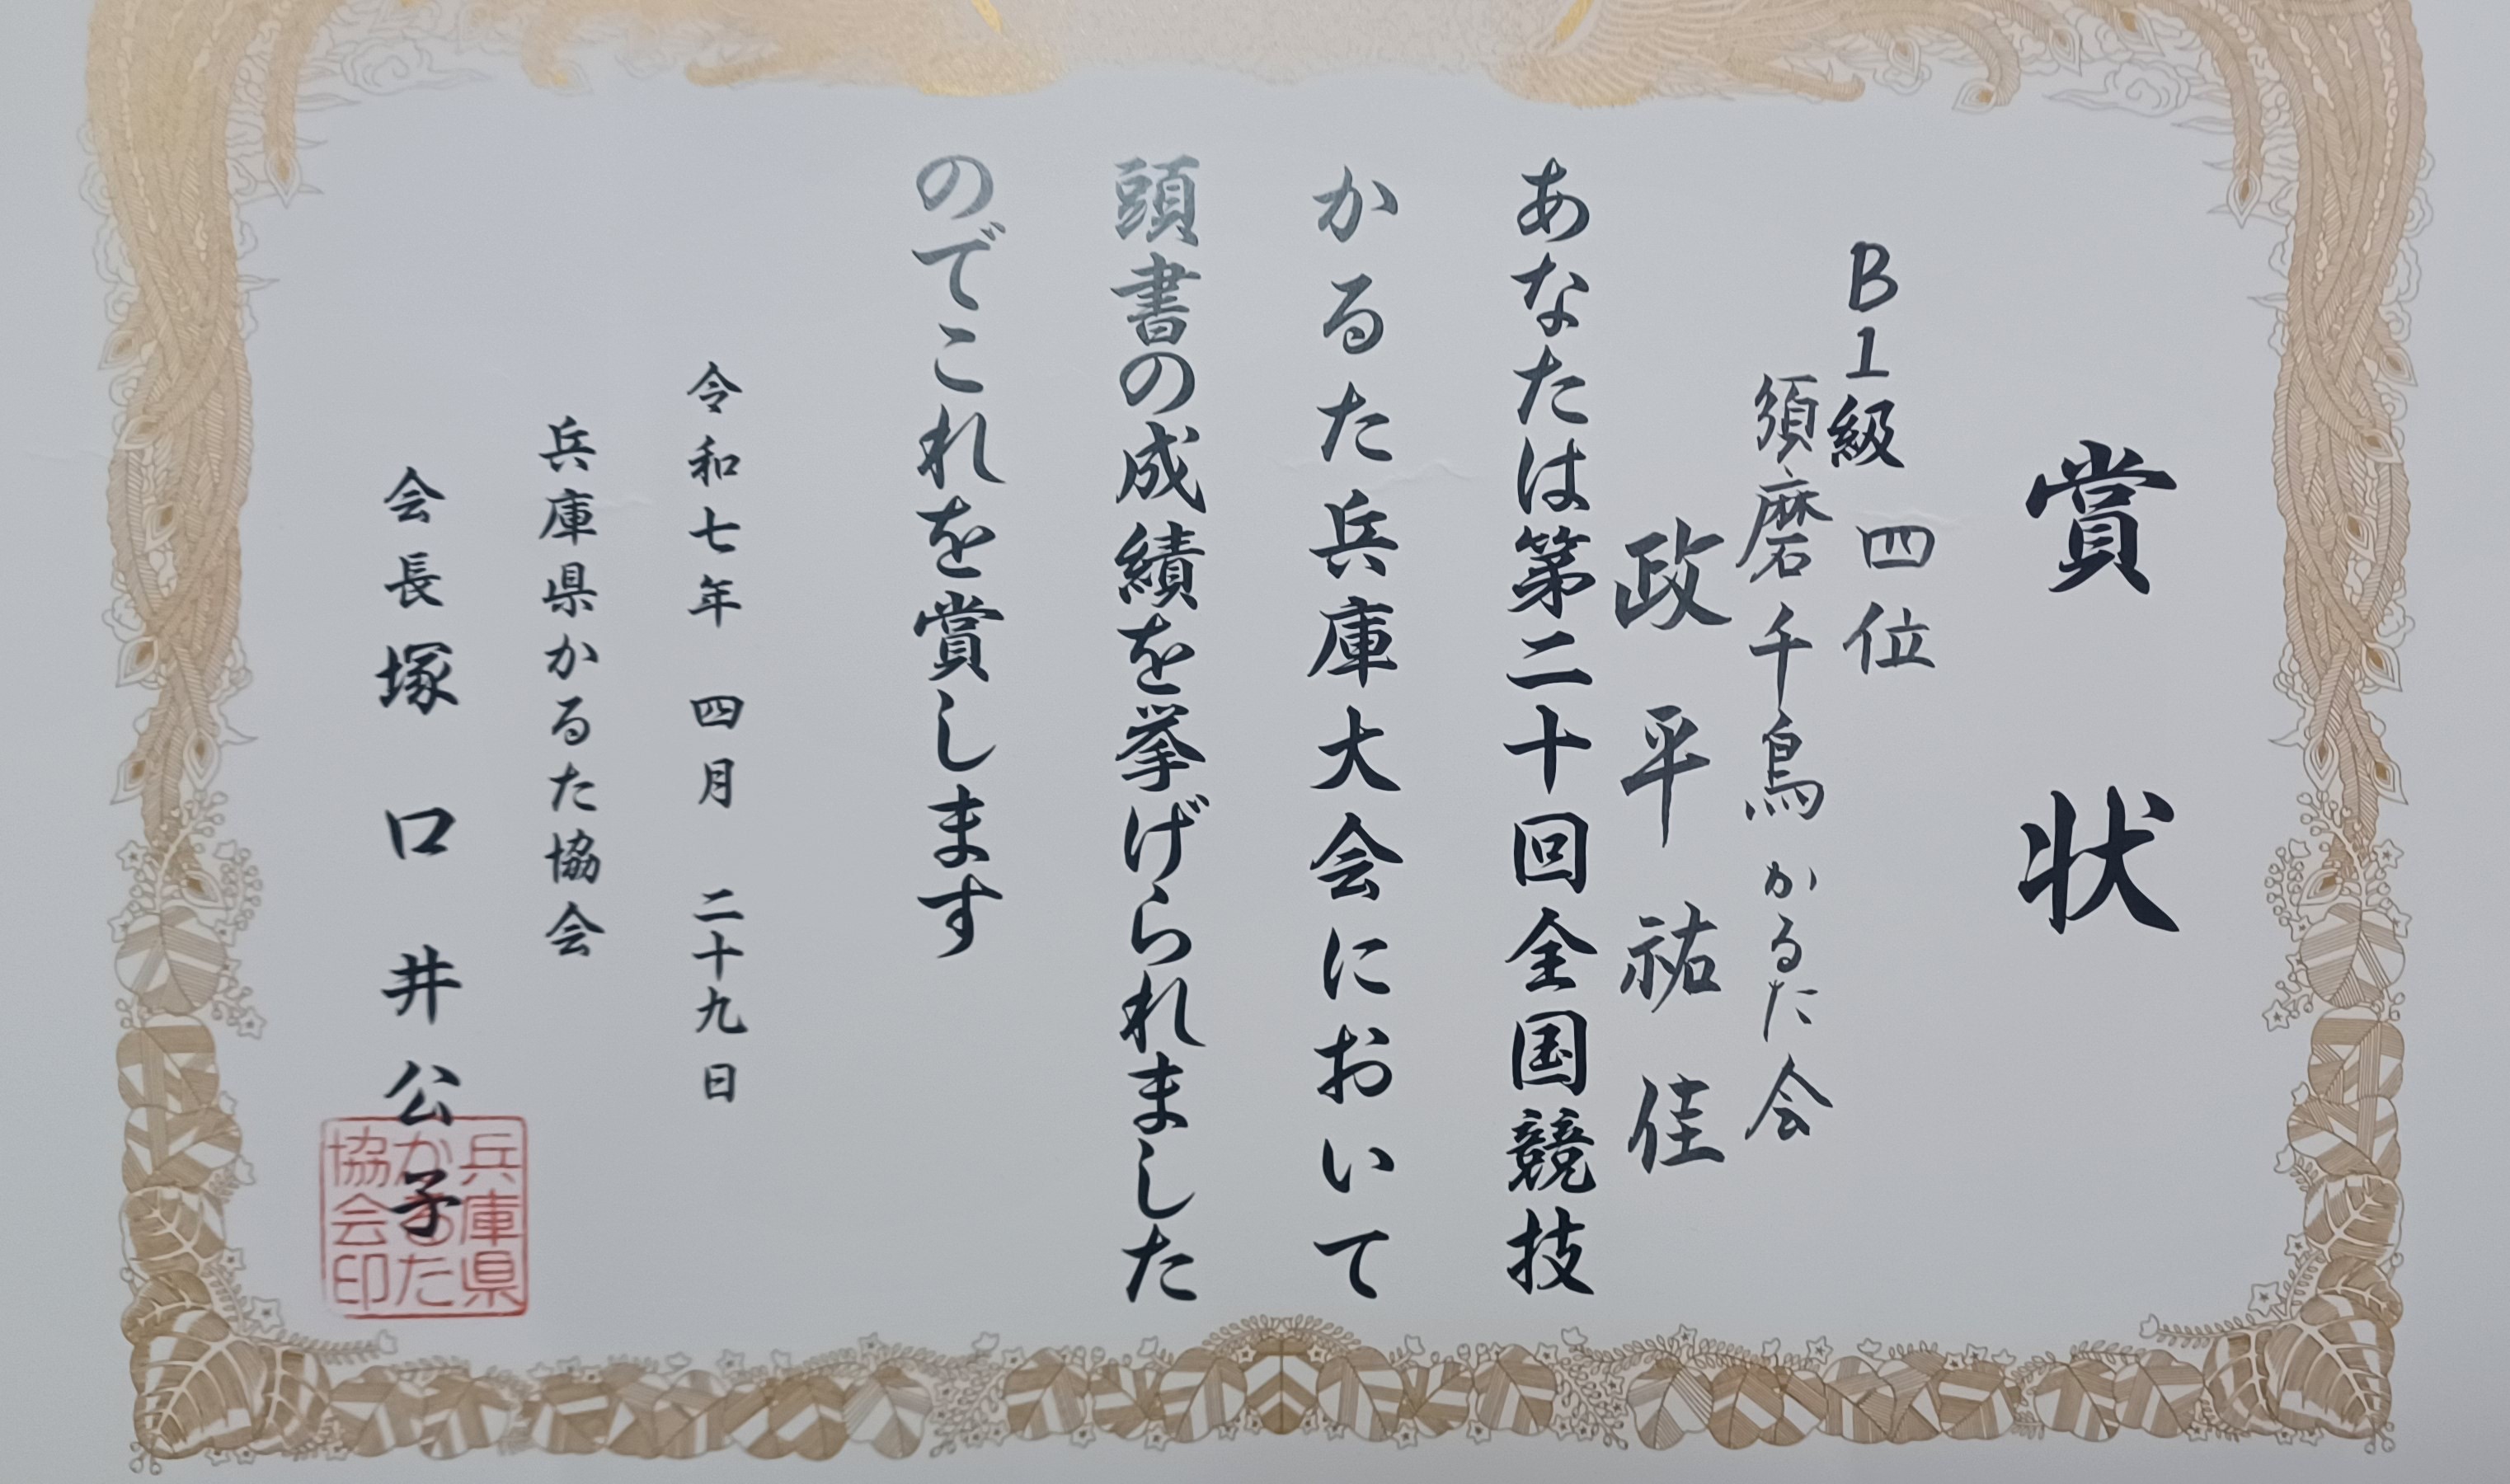 賞状
B1級 四位
須磨千鳥かるた会
政平祐佳
あなたは第二十回全国競技
かるた兵庫大会において
頭書の成績を挙げられました
のでこれを賞します
令和七年 四月 二十九日
兵庫県かるた協会
会長 塚口井公子
兵庫県
かるた
協会印